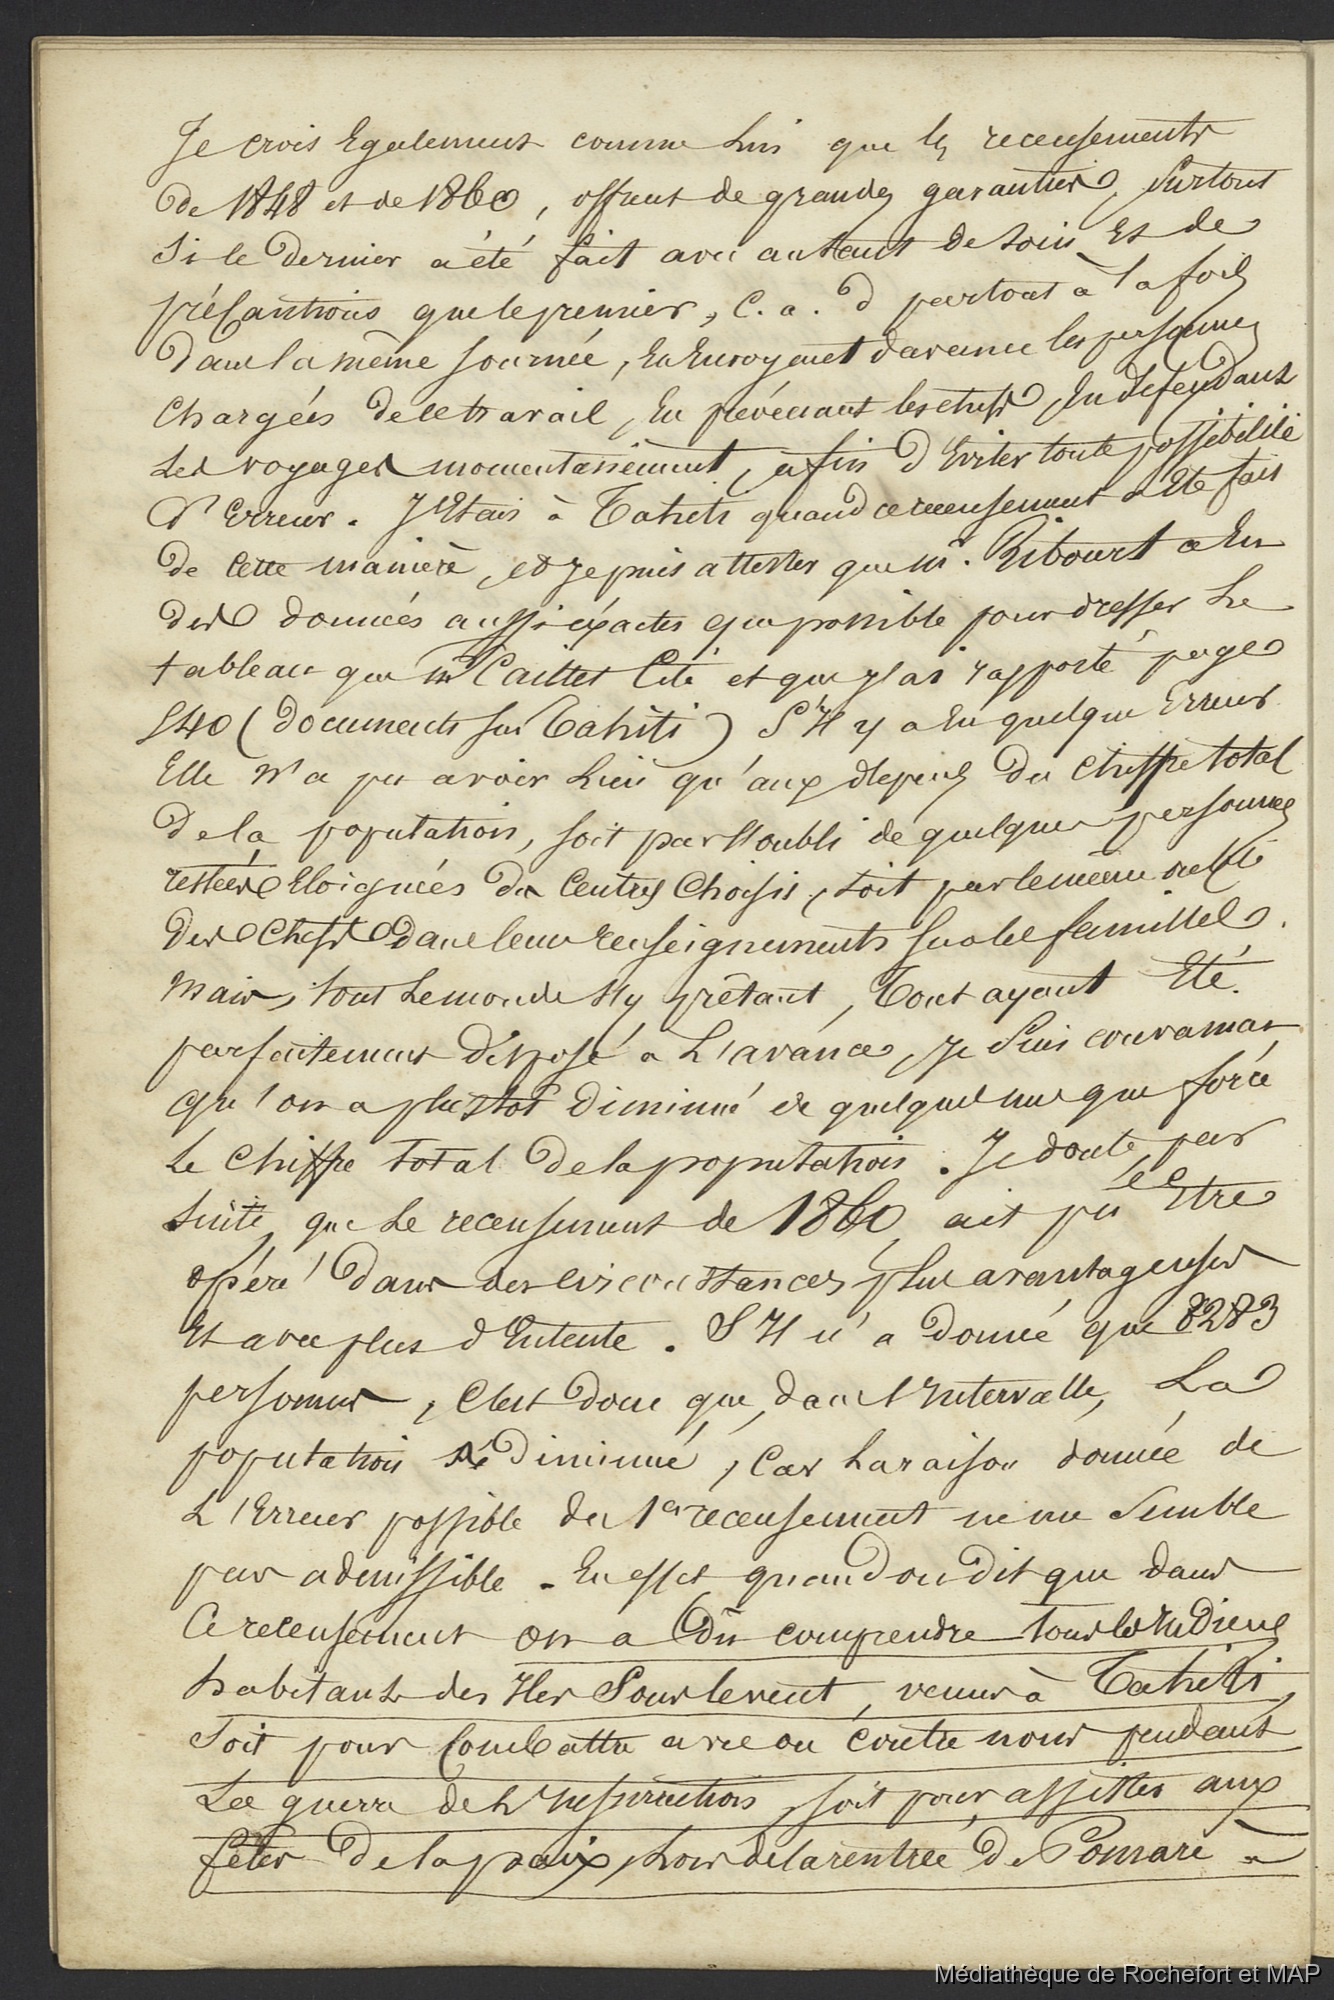 Je crois Egalement comme lui que les recensements
de 1848 et de 1860, offrent de grandes garanties, Surtout
Si le dernier a été fait avec autant de soin Et de
précautions que le premier, c. a. d partout à la fois
dans la même journée, En Envoyant d'avance les personnes
chargées de ce travail, En prévenant les chefs, En défendant
Les voyages momentanément, afin d'Eviter toute possibilité
d'Erreur. J'Etais à Tahiti quand ce recensement a Eté fait
de Cette manière, et Je puis attester que mr. Ribourt a Eu
des données aussi éxactes que possible pour dresser Le
tableau que mr Caillet Cite et que J'ai rapporté page
540 (documents sur Tahiti) S'Il y a Eu quelque Erreur
Elle n'a pu avoir Lieu qu'aux dépens du chiffre total
De la population, soit par l'oubli de quelques personnes
restées Eloignées des Centres Choisis, soit par le même oubli
Des Chefs dans leurs renseignements sur les familles.
Mais, tout Le monde s'y prêtant, Tout ayant Eté
parfaitement disposé à L'avance, Je Suis convaincu
qu'on a plustot diminué de quelques uns que forcé
Le Chiffre total De la population. Je doute, par
suite, que Le recensement de 1860, ait pu Etre
opéré dans des circonstances plus avantageuses
Et avec plus d'Entente. S'Il n'a donné que 8283
personnes, C'est donc que, dans l'Intervalle, La
population a diminué, Car La raison donnée de
L'Erreur possible du 1er recensement ne me Semble
pas admissible. En effet, quand on dit que dans
Ce recensement on a Dû comprendre tous les Indiens
habitants des Iles Sous le vent, venus à Tahiti,
Soit pour Combattre avec ou contre nous pendant
La guerre de L'Insurrection, soit pour assister aux
fêtes De la paix, Lors de la rentrée de Pomaré à
Médiathèque de Rochefort et MAP